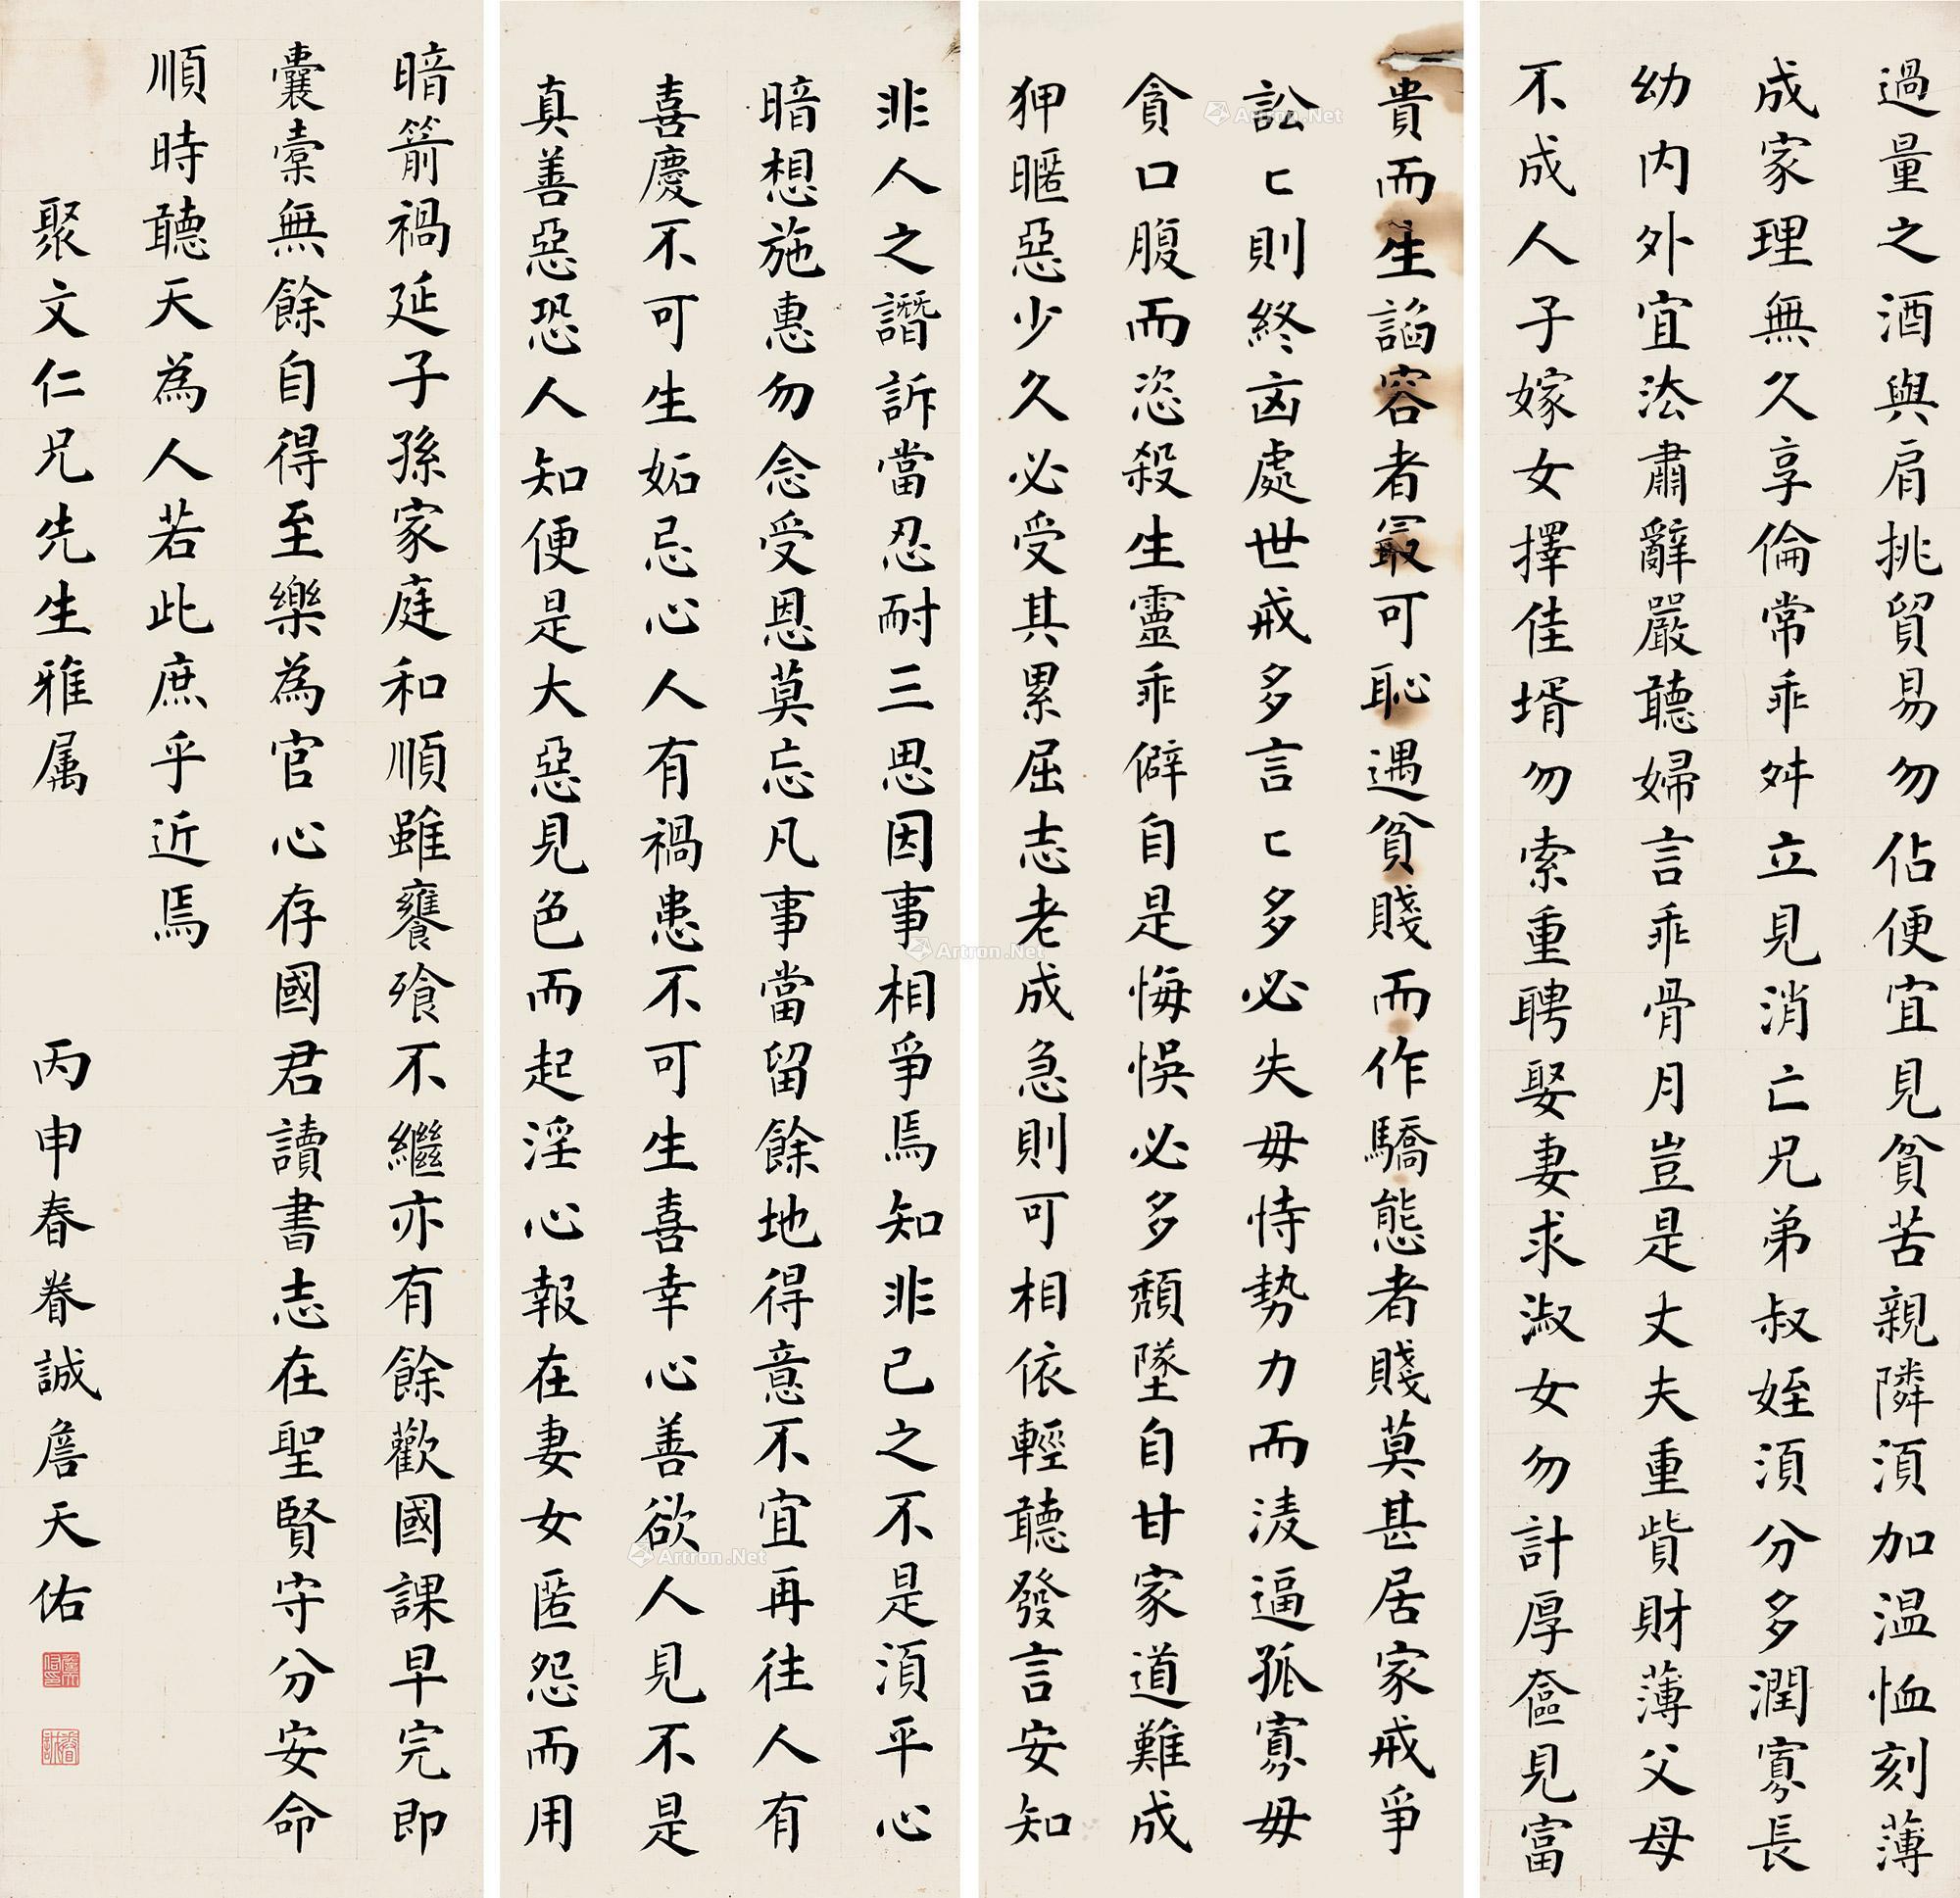 過量之酒與肩挑貿易勿佔便宜見貧苦親隣須加温恤刻薄
成家理無久享倫常乖舛立見消亡兄弟叔姪須分多潤寡長
幼内外宜法肅辭嚴聽婦言乖骨月豈是丈夫重貲財薄父母
不成人子嫁女擇佳壻勿索重聘娶妻求淑女勿計厚奩見富
貴而生諂容者冣可恥遇貧賤而作驕態者賤莫甚居家戒爭
訟匕則終凶處世戒多言匕多必失毋恃勢力而淩逼孤寡毋
貪口腹而恣殺生靈乖僻自是悔悮必多頽墜自甘家道難成
狎暱惡少久必受其累屈志老成急則可相依輕聽發言安知
非人之譖訴當忍耐三思因事相爭焉知非己之不是須平心
暗想施惠勿念受恩莫忘凡事當留餘地得意不宜再往人有
喜慶不可生妬忌心人有禍患不可生喜幸心善欲人見不是
真善惡恐人知便是大惡見色而起淫心報在妻女匿怨而用
暗箭禍延子孫家庭和順雖饔飱不繼亦有餘歡國課早完即
囊橐無餘自得至樂為官心存國君讀書志在聖賢守分安命
順時聽天為人若此庶乎近焉
聚文仁兄先生雅属 丙申春眷誠詹天佑
Artron.Net
Artron.Net
Artron.Net